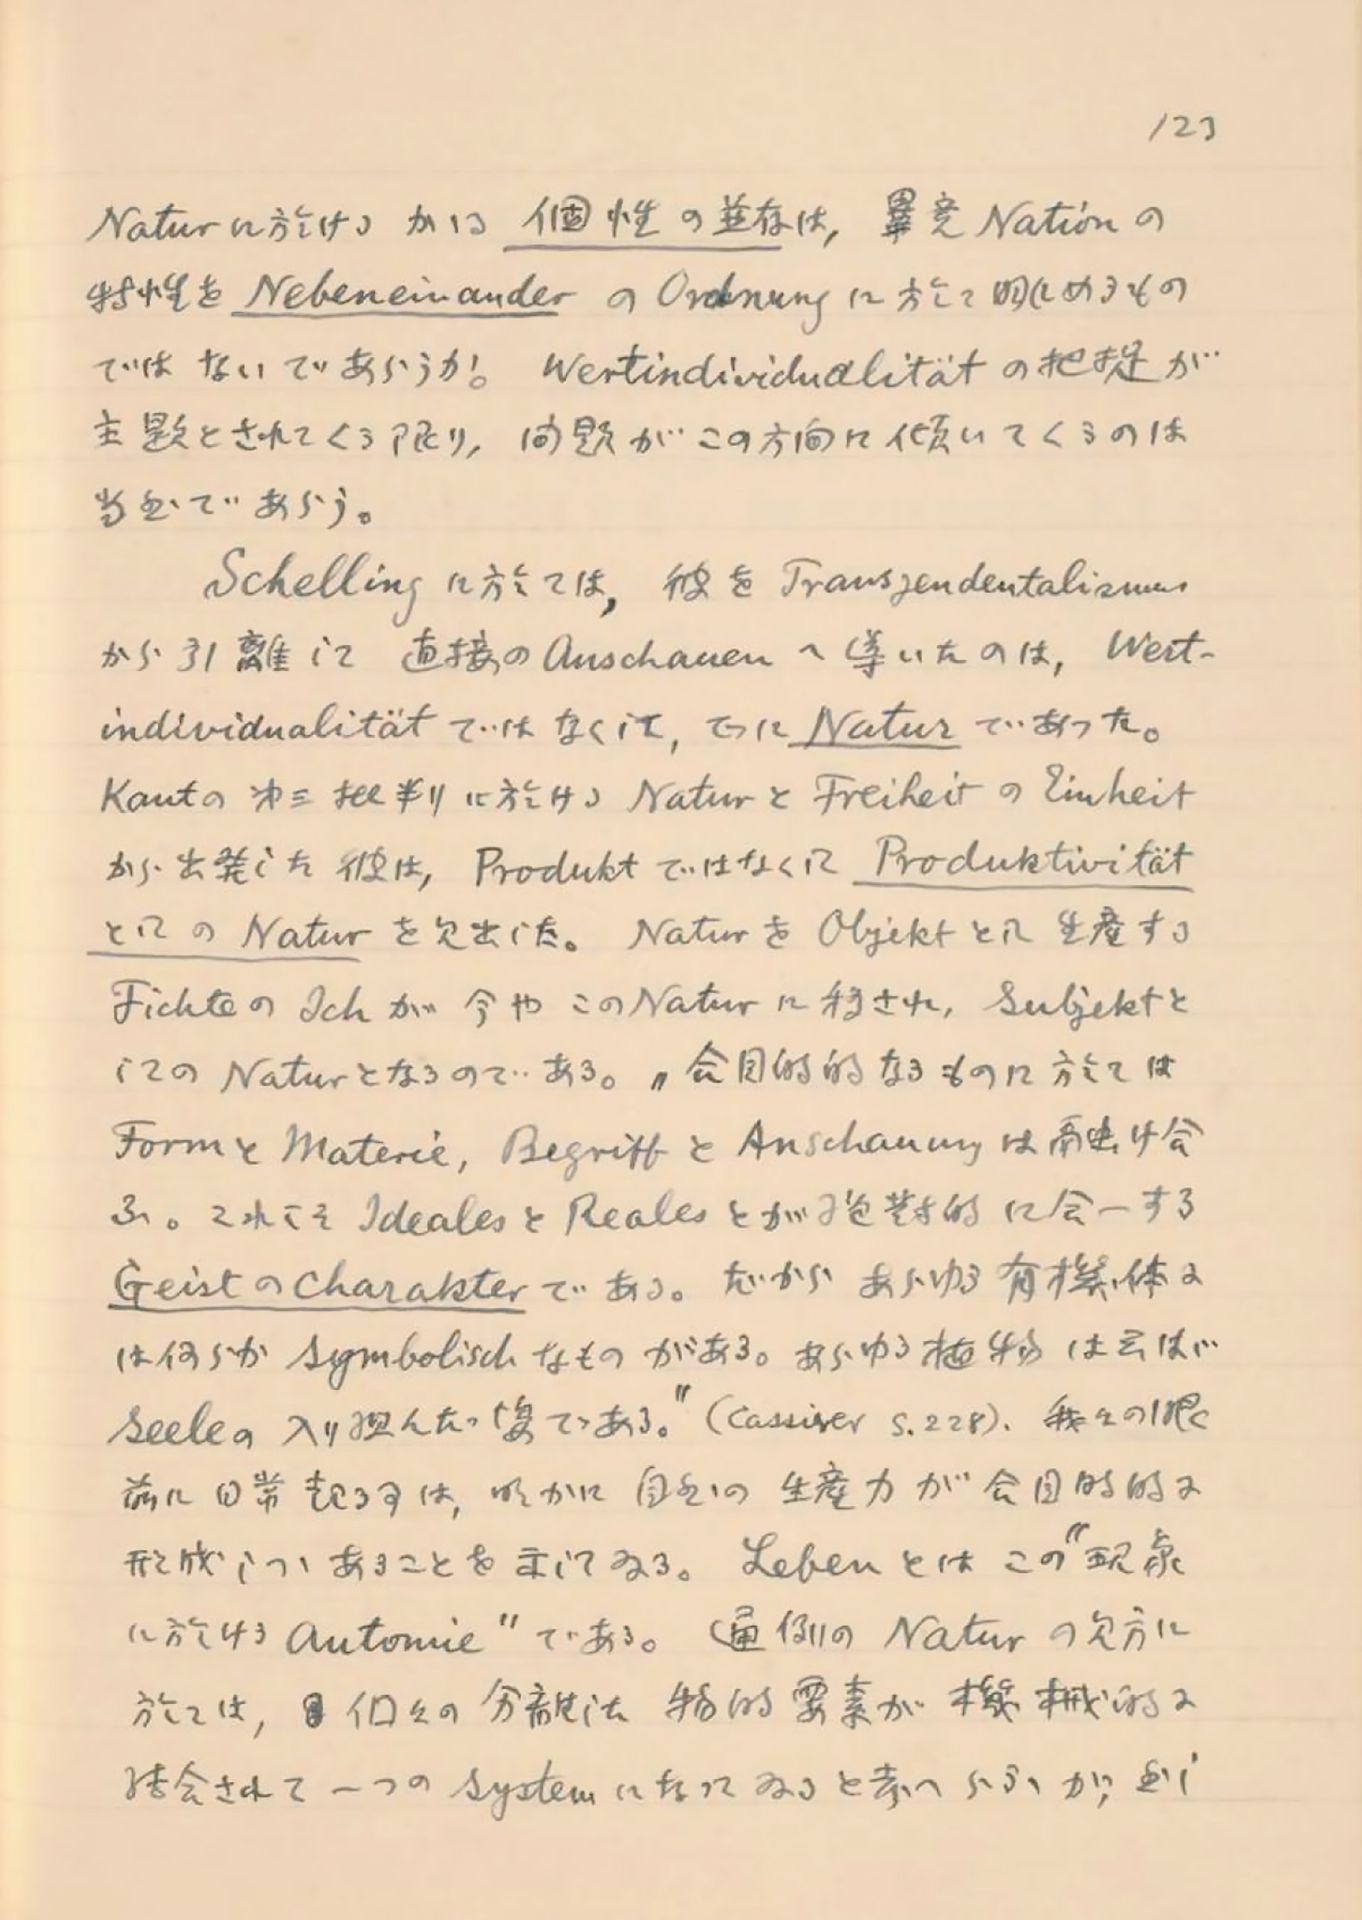 123
Naturに於ける かゝる 個性の並存は, 畢竟 Nationの
特性を Nebeneinander の Ordnung に於て明にめるもの
では ないであらうか。 Wertindividualität の把握が
主題とされてくる限り, 問題がこの方向に傾いてくるのは
当然であらう。
Schelling に於ては, 彼を Transzendentalismus
から引離して 直接の Anschauen へ導いたのは, Wert-
individualität ではなくして, 正に Natur であった。
Kantの 第三批判に於ける Natur と Freiheit の Einheit
から出発した彼は, Produkt ではなくして Produktivität
としての Natur を見出した。 Natur を Objekt として 生産する
Fichte の Ich が 今や この Natur に移され, Subjekt と
しての Natur となるのである。 „合目的的なるものに於ては
Form と Materie, Begriff と Anschauung は融け合
ふ。 これこそ Ideales と Reales とが絶対的に合一する
Geist の Charakter である。 だから あらゆる有機体に
は何らか symbolisch なものがある。 あらゆる植物は云はゞ
Seele の 入り組んだ姿である。" (Cassirer S.228). 我々の眼
前に日常起る事は, 明かに 自然の 生産力が合目的的に
形成しつゝあることを示してゐる。 Leben とは この "現象
に於ける Automie" である。 通例の Natur の見方に
於ては, 個々の 分離した 物的要素が 機械的に
結合されて 一つの System になってゐると考へらふが, 然し